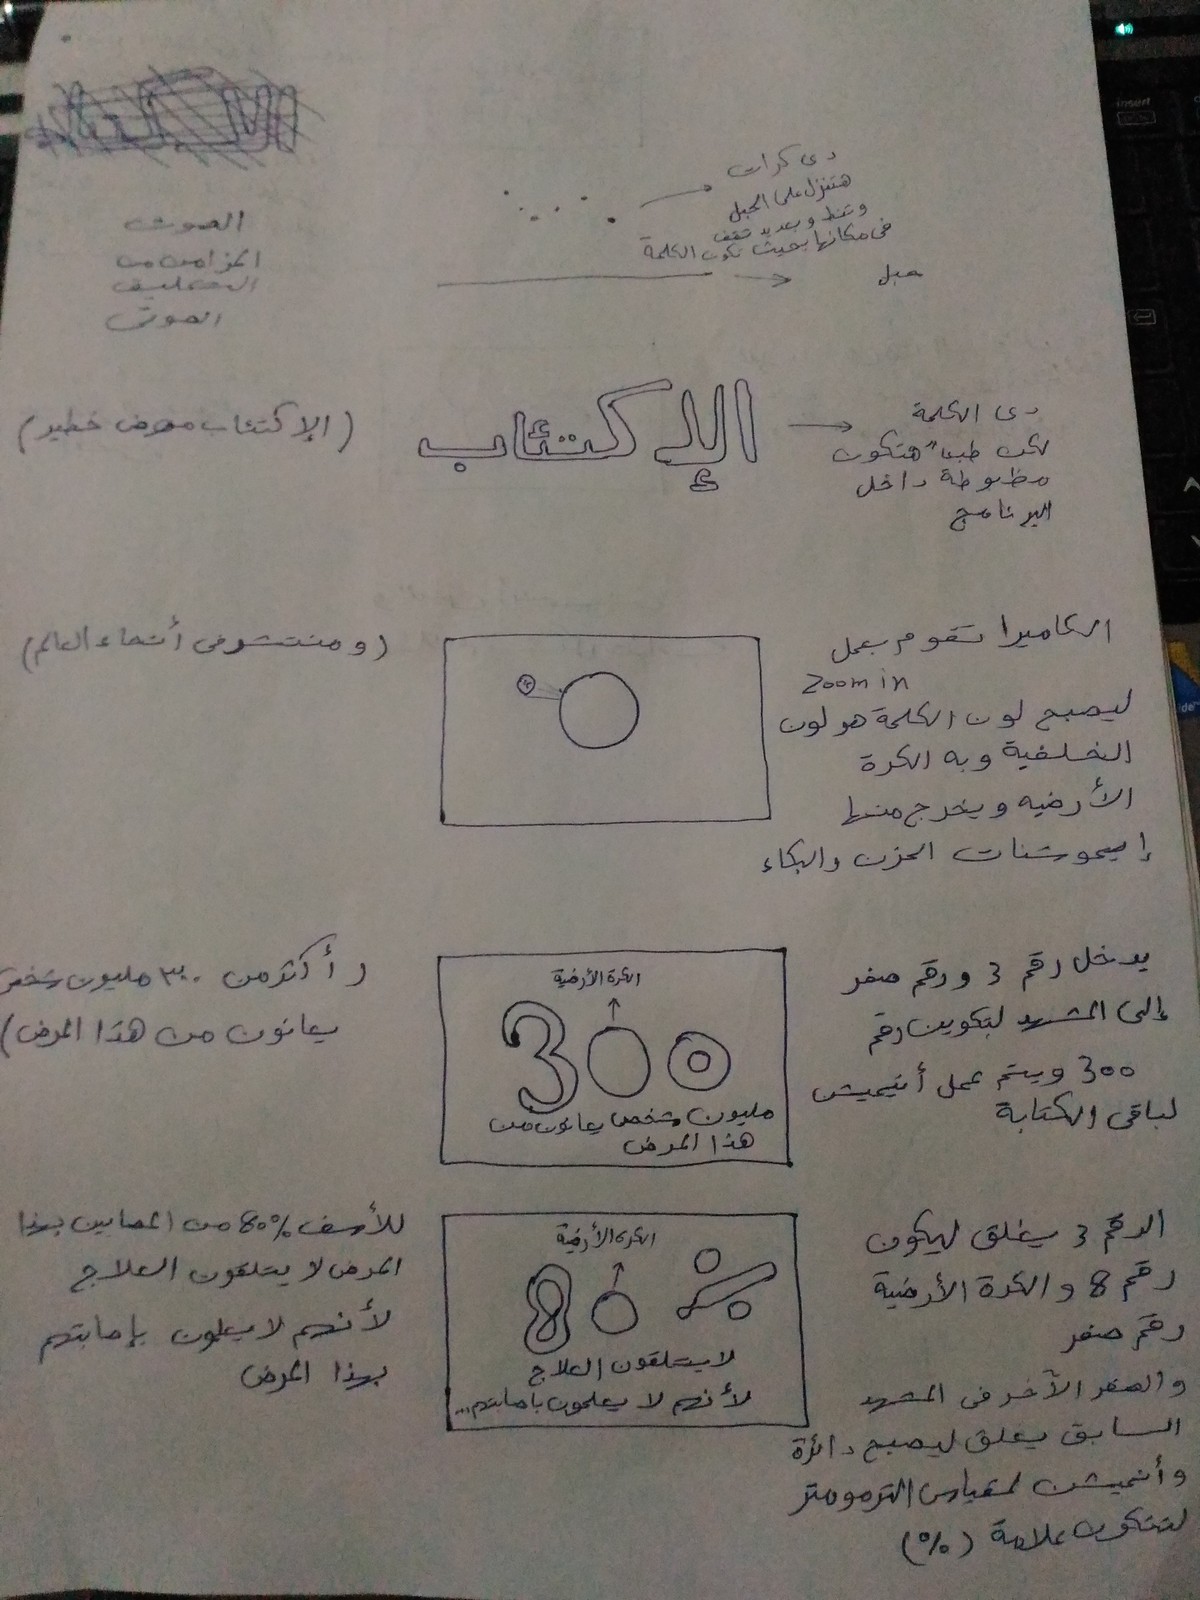 دى كرات
هتنزل على الحبل
وتنط وبعد يد تقف
فى مكانها بحيث تكون الكلمة
حبل
الصوت
المتزامن من
التعليق
الصوتى
الإكتئاب
دى الكلمة
لكن طبعاً هتكون
مظبوطة داخل
البرنامج
(الإكتئاب مرض خطير)
الكاميرا تقوم بعمل
zoom in
ليصبح لون الكلمة هو لون
الخلفية وبه الكرة
الأرضيه ويخرج منها
إيموشنات الحزن والبكاء
(ومنتشر فى أنحاء العالم)
يدخل رقم 3 ورقم صفر
إلى المشهد لتكوين رقم
300 ويتم عمل أنيميشن
لباقى الكتابة
الكرة الأرضية
300
مليون شخص يعانون من
هذا المرض
(أكثر من ٣٠٠ مليون شخص
يعانون من هذا المرض)
الرقم 3 يغلق ليكون
رقم 8 والكرة الأرضية
رقم صفر
والصفر الآخر فى المشهد
السابق يغلق ليصبح دائرة
وأنميشن لمقياس الترمومتر
لتتكون علامة (%)
الكرة الأرضية
80 %
لا يتلقون العلاج
لأنهم لا يعلمون باصابتهم...
للأسف 80% من المصابين بهذا
المرض لا يتلقون العلاج
لأنهم لا يعلمون بإصابتهم
بهذا المرض
insert